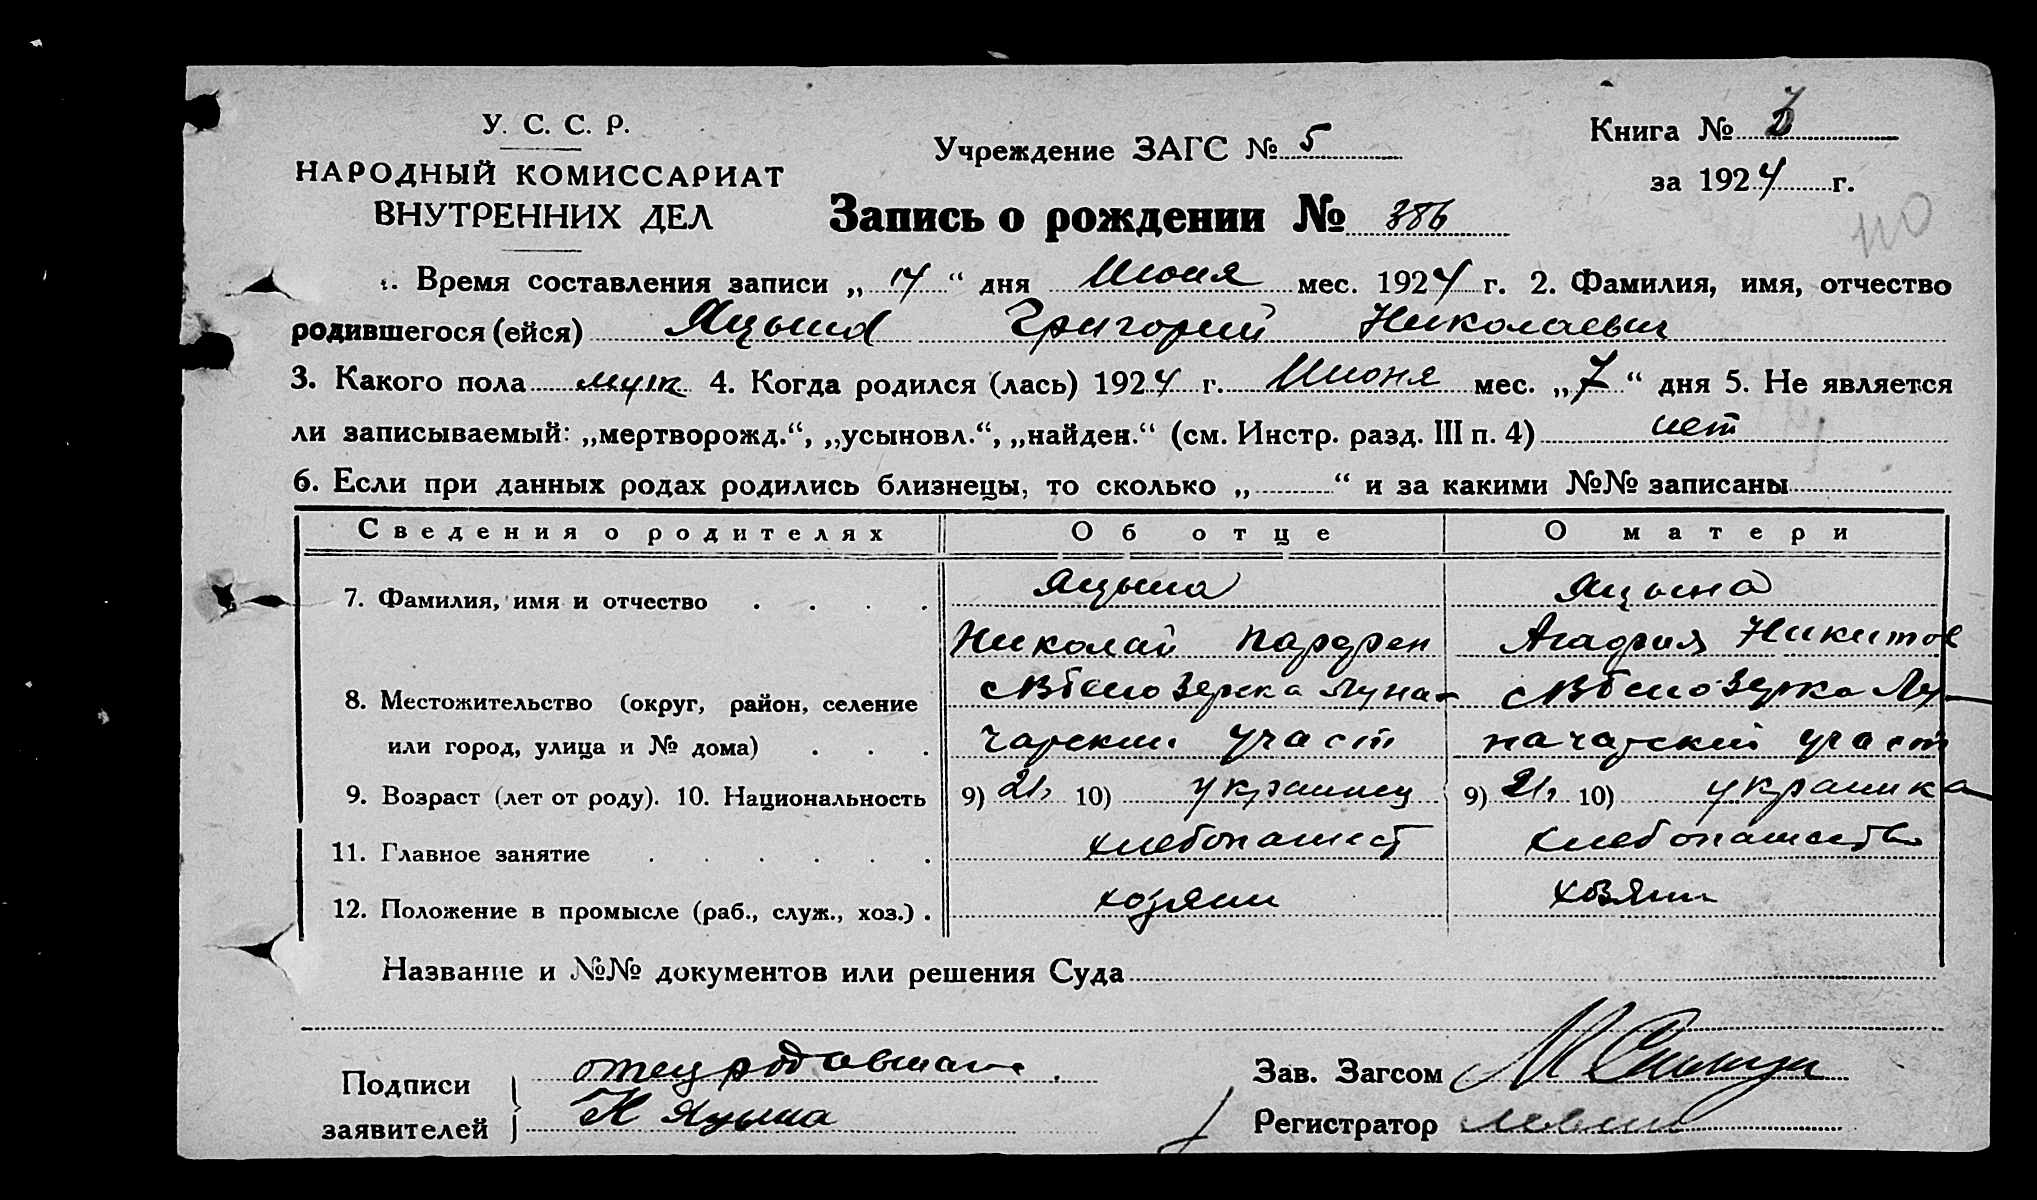 У. С. С. Р.
НАРОДНЫЙ КОМИССАРИАТ
ВНУТРЕННИХ ДЕЛ
Учреждение ЗАГС № 5
Книга №
за 1924 г.
Запись о рождении № 386
110
1. Время составления записи „ 14 “ дня Июня мес. 1924 г. 2. Фамилия, имя, отчество
родившегося (ейся) Яцына Григорий Николаевич
3. Какого пола муж 4. Когда родился (лась) 1924 г. Июня мес. „ 7 “ дня 5. Не является
ли записываемый: „мертворожд.“, „усыновл.“, „найден.“ (см. Инстр. разд. III п. 4) нет
6. Если при данных родах родились близнецы, то сколько „ “ и за какими №№ записаны
Сведения о родителях Об отце О матери
7. Фамилия, имя и отчество Яцына Яцына
Николай Парфен Агафия Никитов
8. Местожительство (округ, район, селение Белозерка Луна- Белозерка Лу-
или город, улица и № дома) чарский участ начарский участ
9. Возраст (лет от роду). 10. Национальность 9) 21, 10) украинец 9) 21, 10) украинка
11. Главное занятие хлебопашест хлебопашество
12. Положение в промысле (раб., служ., хоз.) хозяин хозяин
Название и №№ документов или решения Суда
Подписи
заявителей
отец
Н Яцына
Зав. Загсом
Регистратор